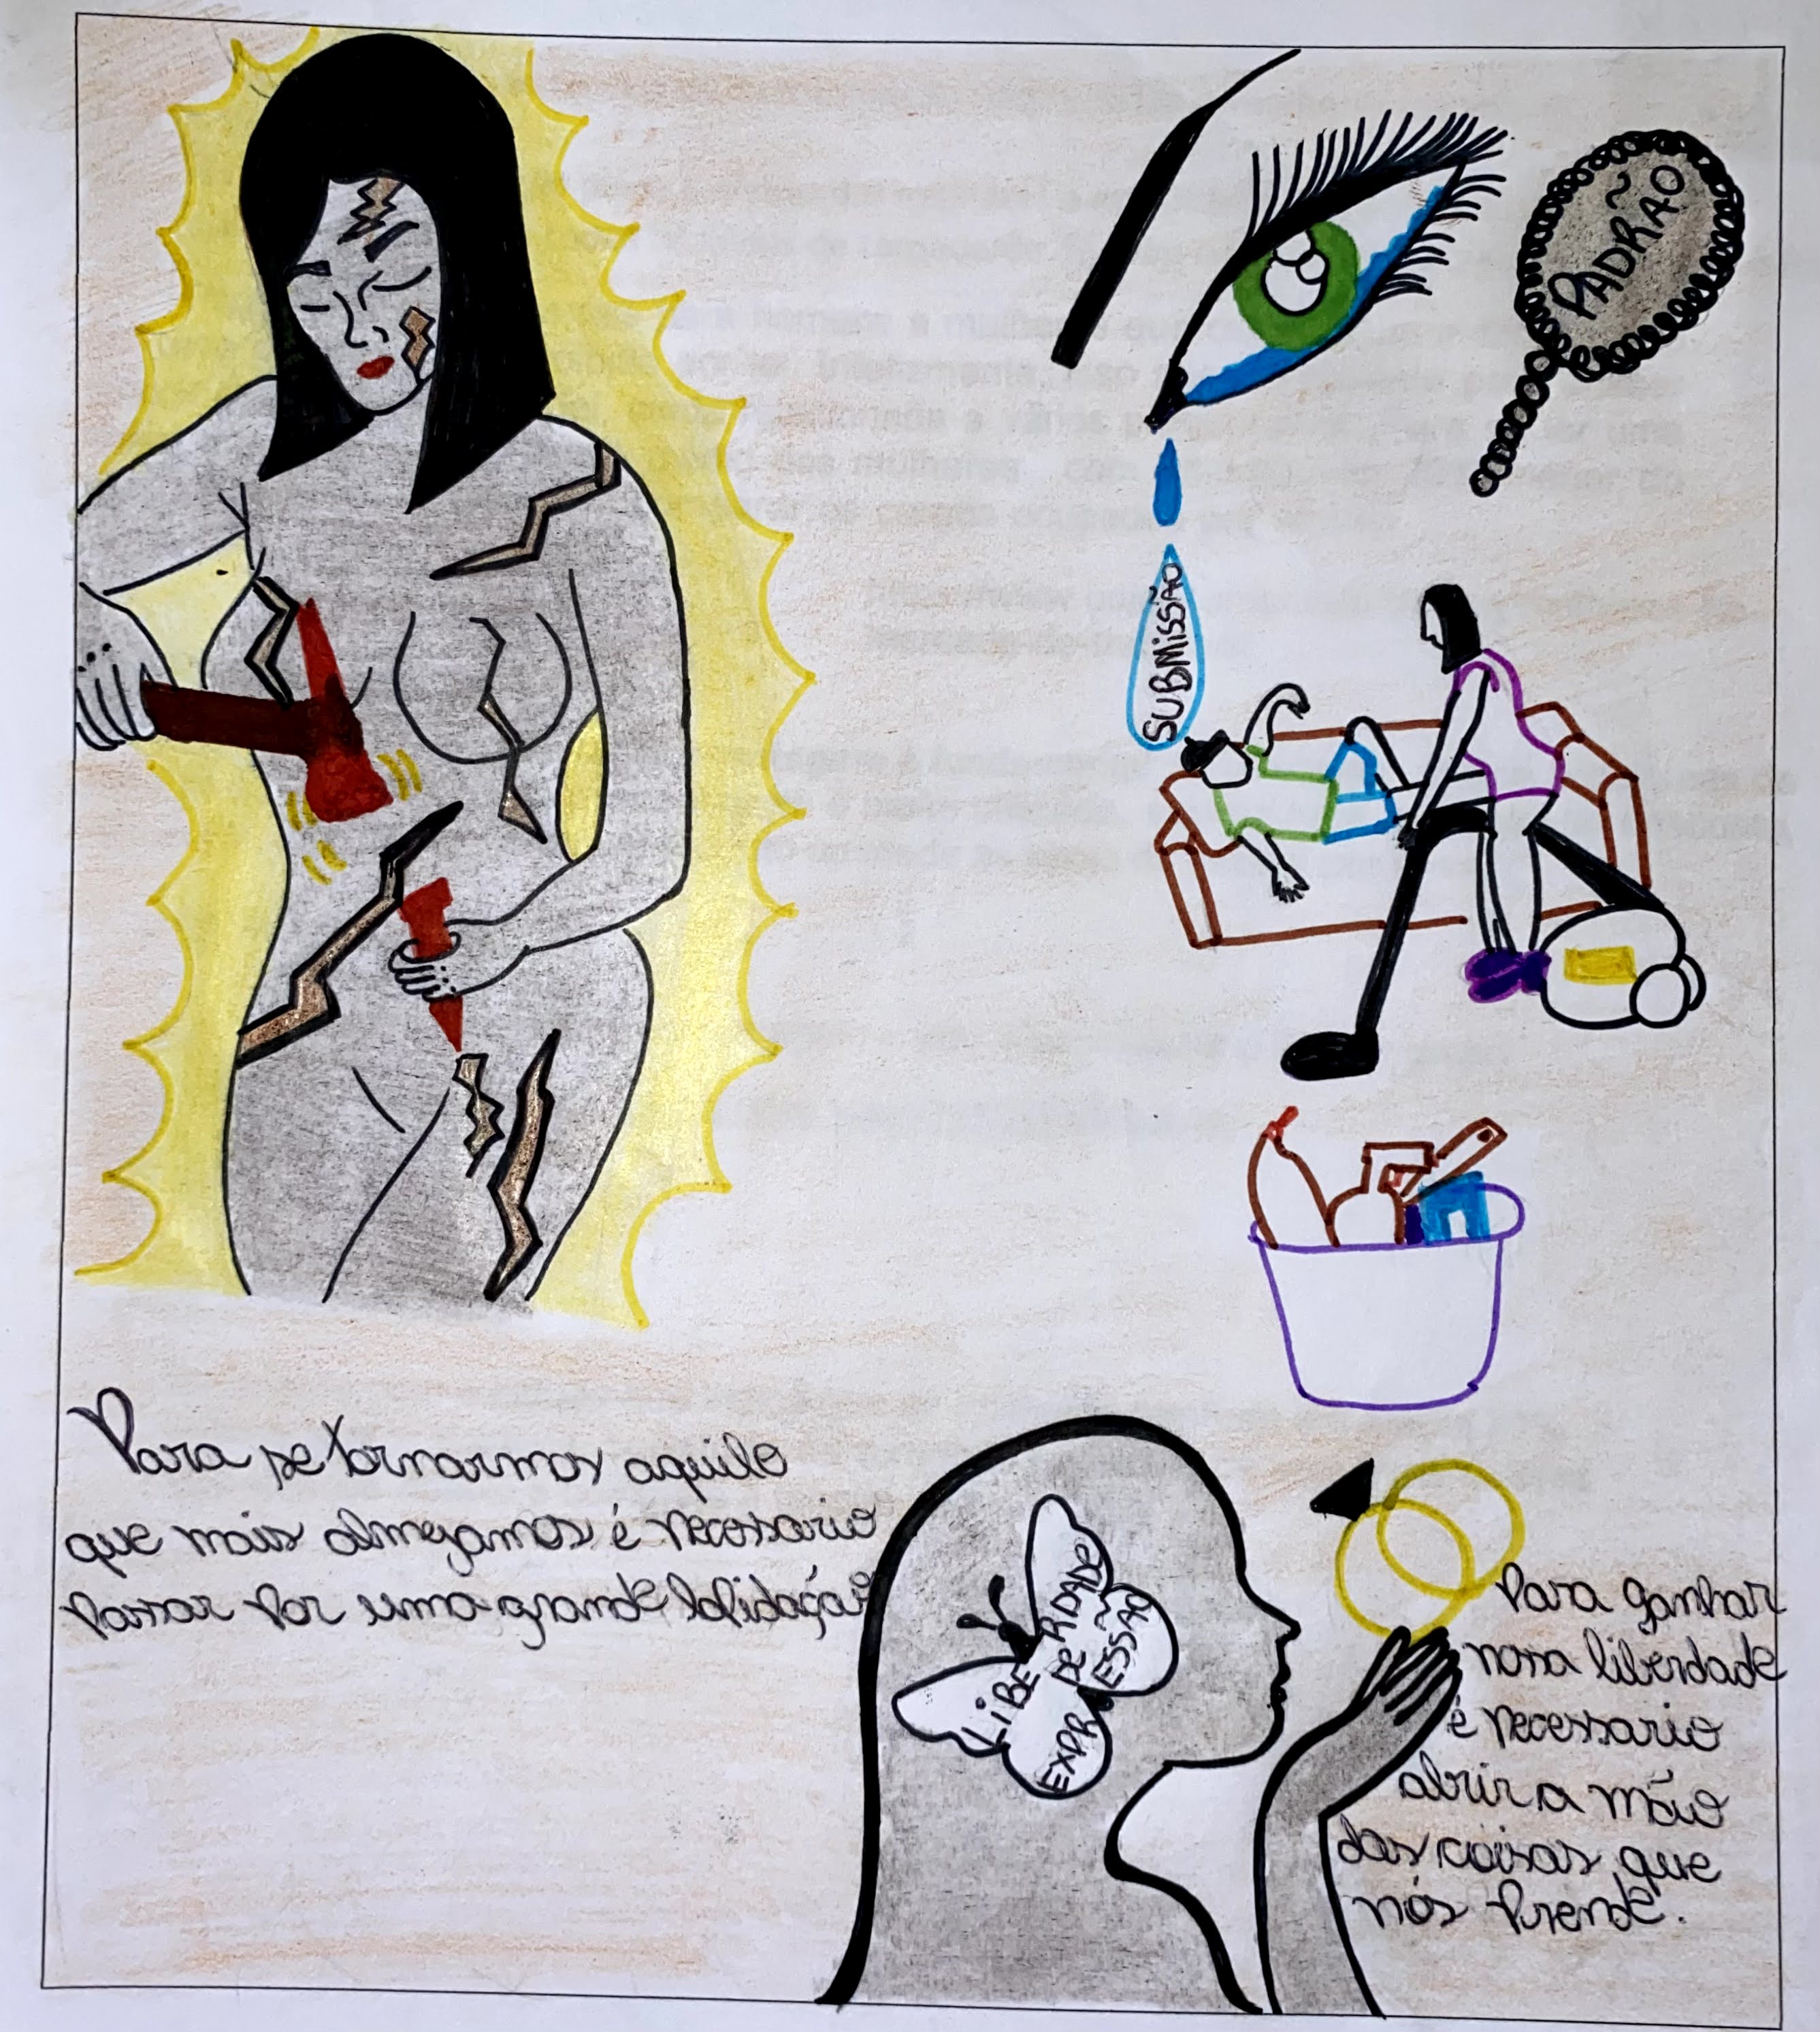 PADRÃO
SUBMISSÃO
Para se tornarmos aquilo
que mais almejamos é necessario
passar por uma grande lapidação
LIBERDADE
DE
EXPRESSÃO
Para ganhar
nossa liberdade
é necessario
abrir a mão
das coisas que
nós prende.